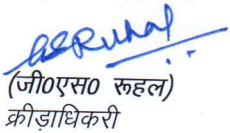 (जी०एस० रूहल)
क्रीड़ाधिकरी